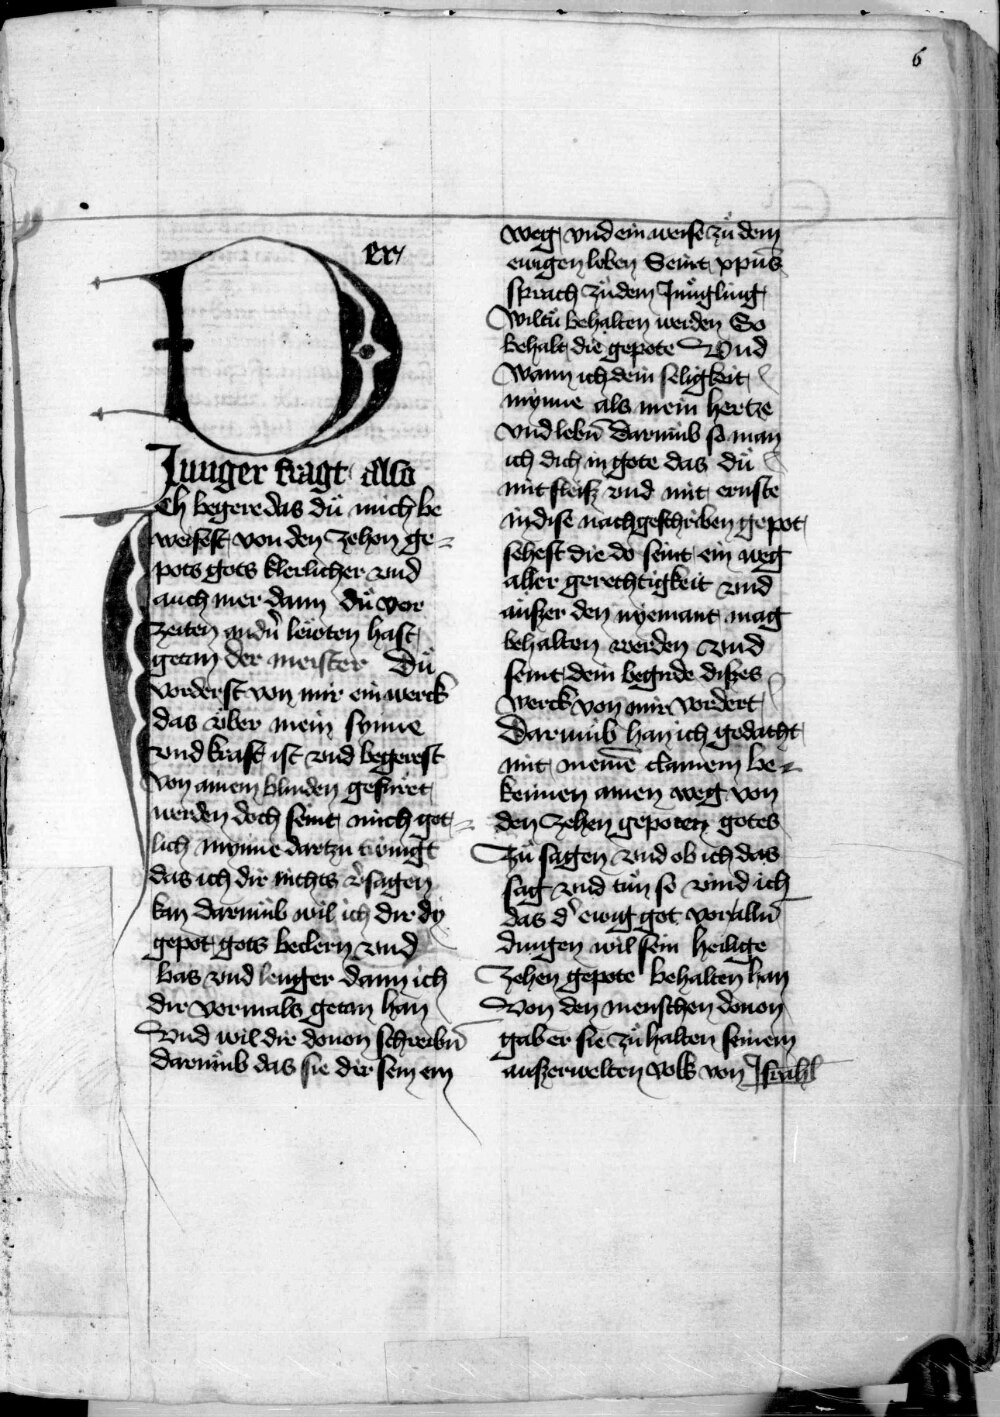 6
Der
Junger fragt also
Ich begere das dů mich be
weisest von den zehen ge⸗
pots gots klerlicher vnd
auch mer dann dů vor
zeiten andn̄ leẅten hast
getan der meister Dů
vorderst von mir ein werck
das v̈ber mein synne
vnd kraft ist vnd begerest
von ainem blinden gefüret
werden doch seint mich got⸗
lich mynne dartzu twingt
das ich dir nichts v̾sagen
kan darumb wil ich dir dy
gepot gots beclern vnd
bas vnd lenger dann ich
dir vormals getan han
Vnd wil dir douon schreibn̄
darumb das sie dir sein ein
weg vnd ein weise zů dem
ewigen leben Seint xpūs
sprach zů dem Jungling
wiltu behalten werden So
behalt die gepote Vnd
wann ich dein seligkeit
mynne als mein hertze
vnd lebn̄ darumb so man
ich dich in gote das dů
mit fleisz vnd mit ernste
in dise nachgeschriben gepot
sehest die do seint ein weg
aller gerechtigkeit vnd
aüszer den nyemant mag
behalten werden vnd
seint dein begirde diszes
werck von mir vordert
Darumb han ich gedacht
mit meinē clainem be⸗
kennen ainen weg von
den zehen gepoten gotes
Zů sagen vnd ob ich das
sag vnd tůn so vind ich
das d̾ ewig got vor alln̄
dingen wil sein heilige
Zehen gepote behalten han
Von den menschen douon
gab er sie zů halten seinem
auszerwelten volk von Jsrahl